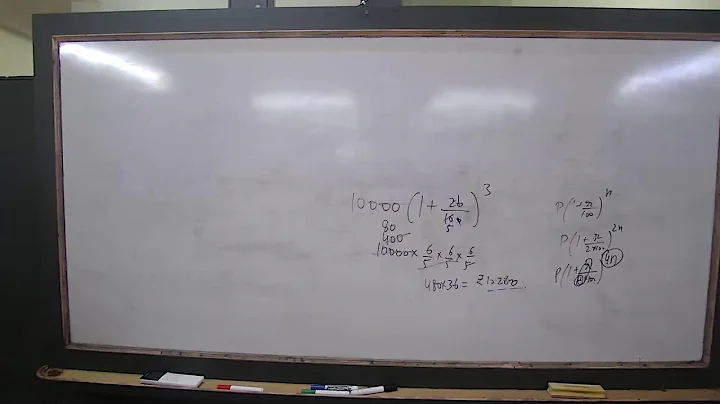 10000 (1 + 26/100)^3
80
400
10000 × 6/5 × 6/5 × 6/5
480×36 =
P(1+r/100)^n
P(1+r/2×100)^2n
P(1+r/4×100)^4n